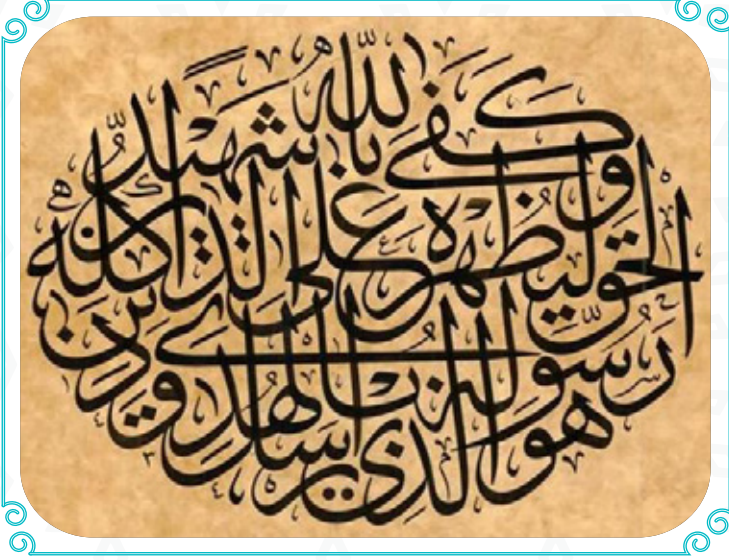 هُوَ الَّذِي أَرْسَلَ
رَسُولَهُ بِالْهُدَى وَدِينِ
الْحَقِّ لِيُظْهِرَهُ عَلَى الدِّينِ كُلِّهِ
وَكَفَى بِاللَّهِ شَهِيدًا